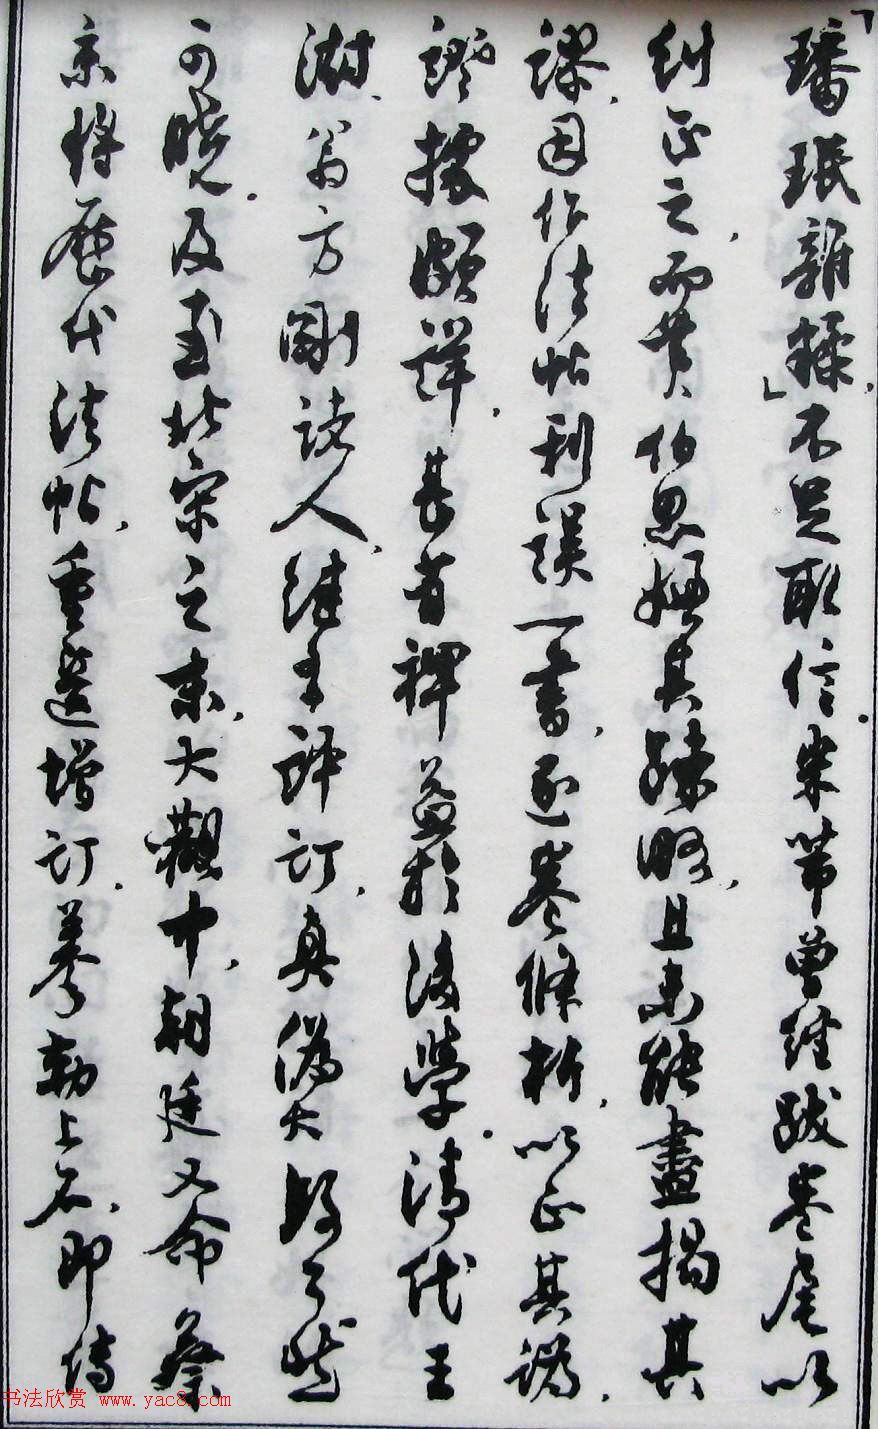 「璠珉雜揉」不足取信。米芾曾經跋卷尾以
糾正之，而黃伯思嫌其疎略，且未能盡揭其
謬，因作法帖刊誤一書，逐卷條析，以正其譌，
證據頗詳，甚有裨益於後學。清代王
澍、翁方剛諸人，繼事評訂，真僞大致了然
可曉。及至北宋之末，大觀中，朝廷又命蔡
京將歷代法帖，重選增訂，摹勒上石，即傳
书法欣赏 www.yac8.com